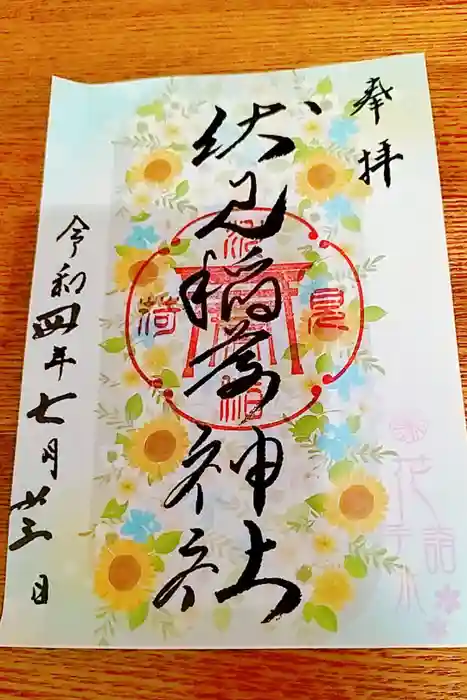 奉拝
伏見稲荷神社
令和四年七月廿三日
花手水詣